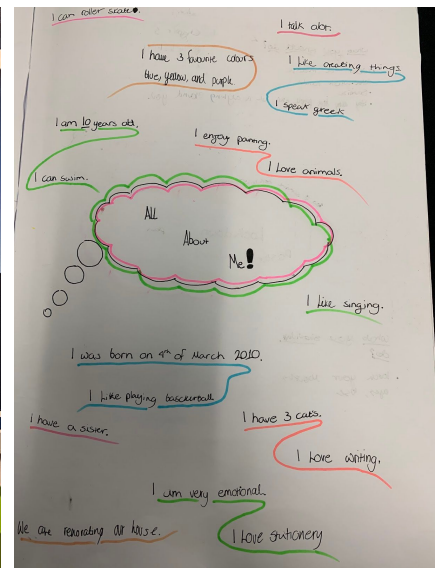 I can roller skate.
I talk alot.
I have 3 favourite colours
blue, yellow, and purple
I like creating things
I speak greek
I am 10 years old.
I enjoy painting.
I Love animals.
I can swim.
ALL
About
Me!
I like singing.
I was born on 4th of March 2010.
I Like playing bascketball
i have a sister.
I have 3 cats.
I Love writing.
I am very emotional.
We are renovating our house.
I Love stationery